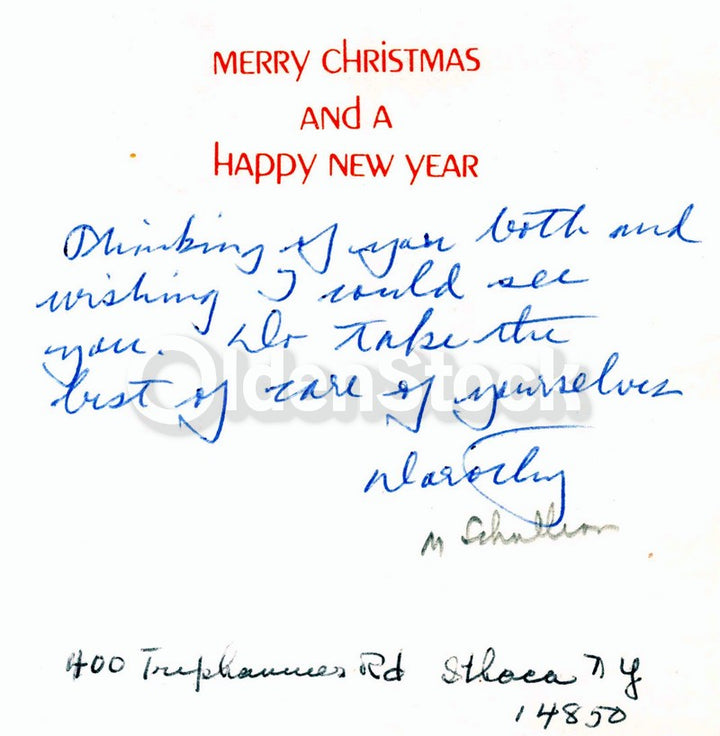 MERRY CHRISTMAS
AND A
HAPPY NEW YEAR
Thinking of you both and
wishing I could see
you. Do take the
best of care of yourselves
Dorothy
M Schullian
OldenStock
400 Triphammer Rd Ithaca NY
14850